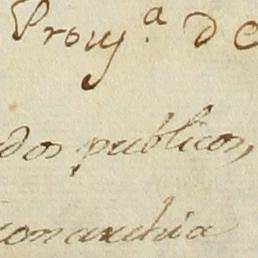 Provy.ª d
dos publicos,
onarchia